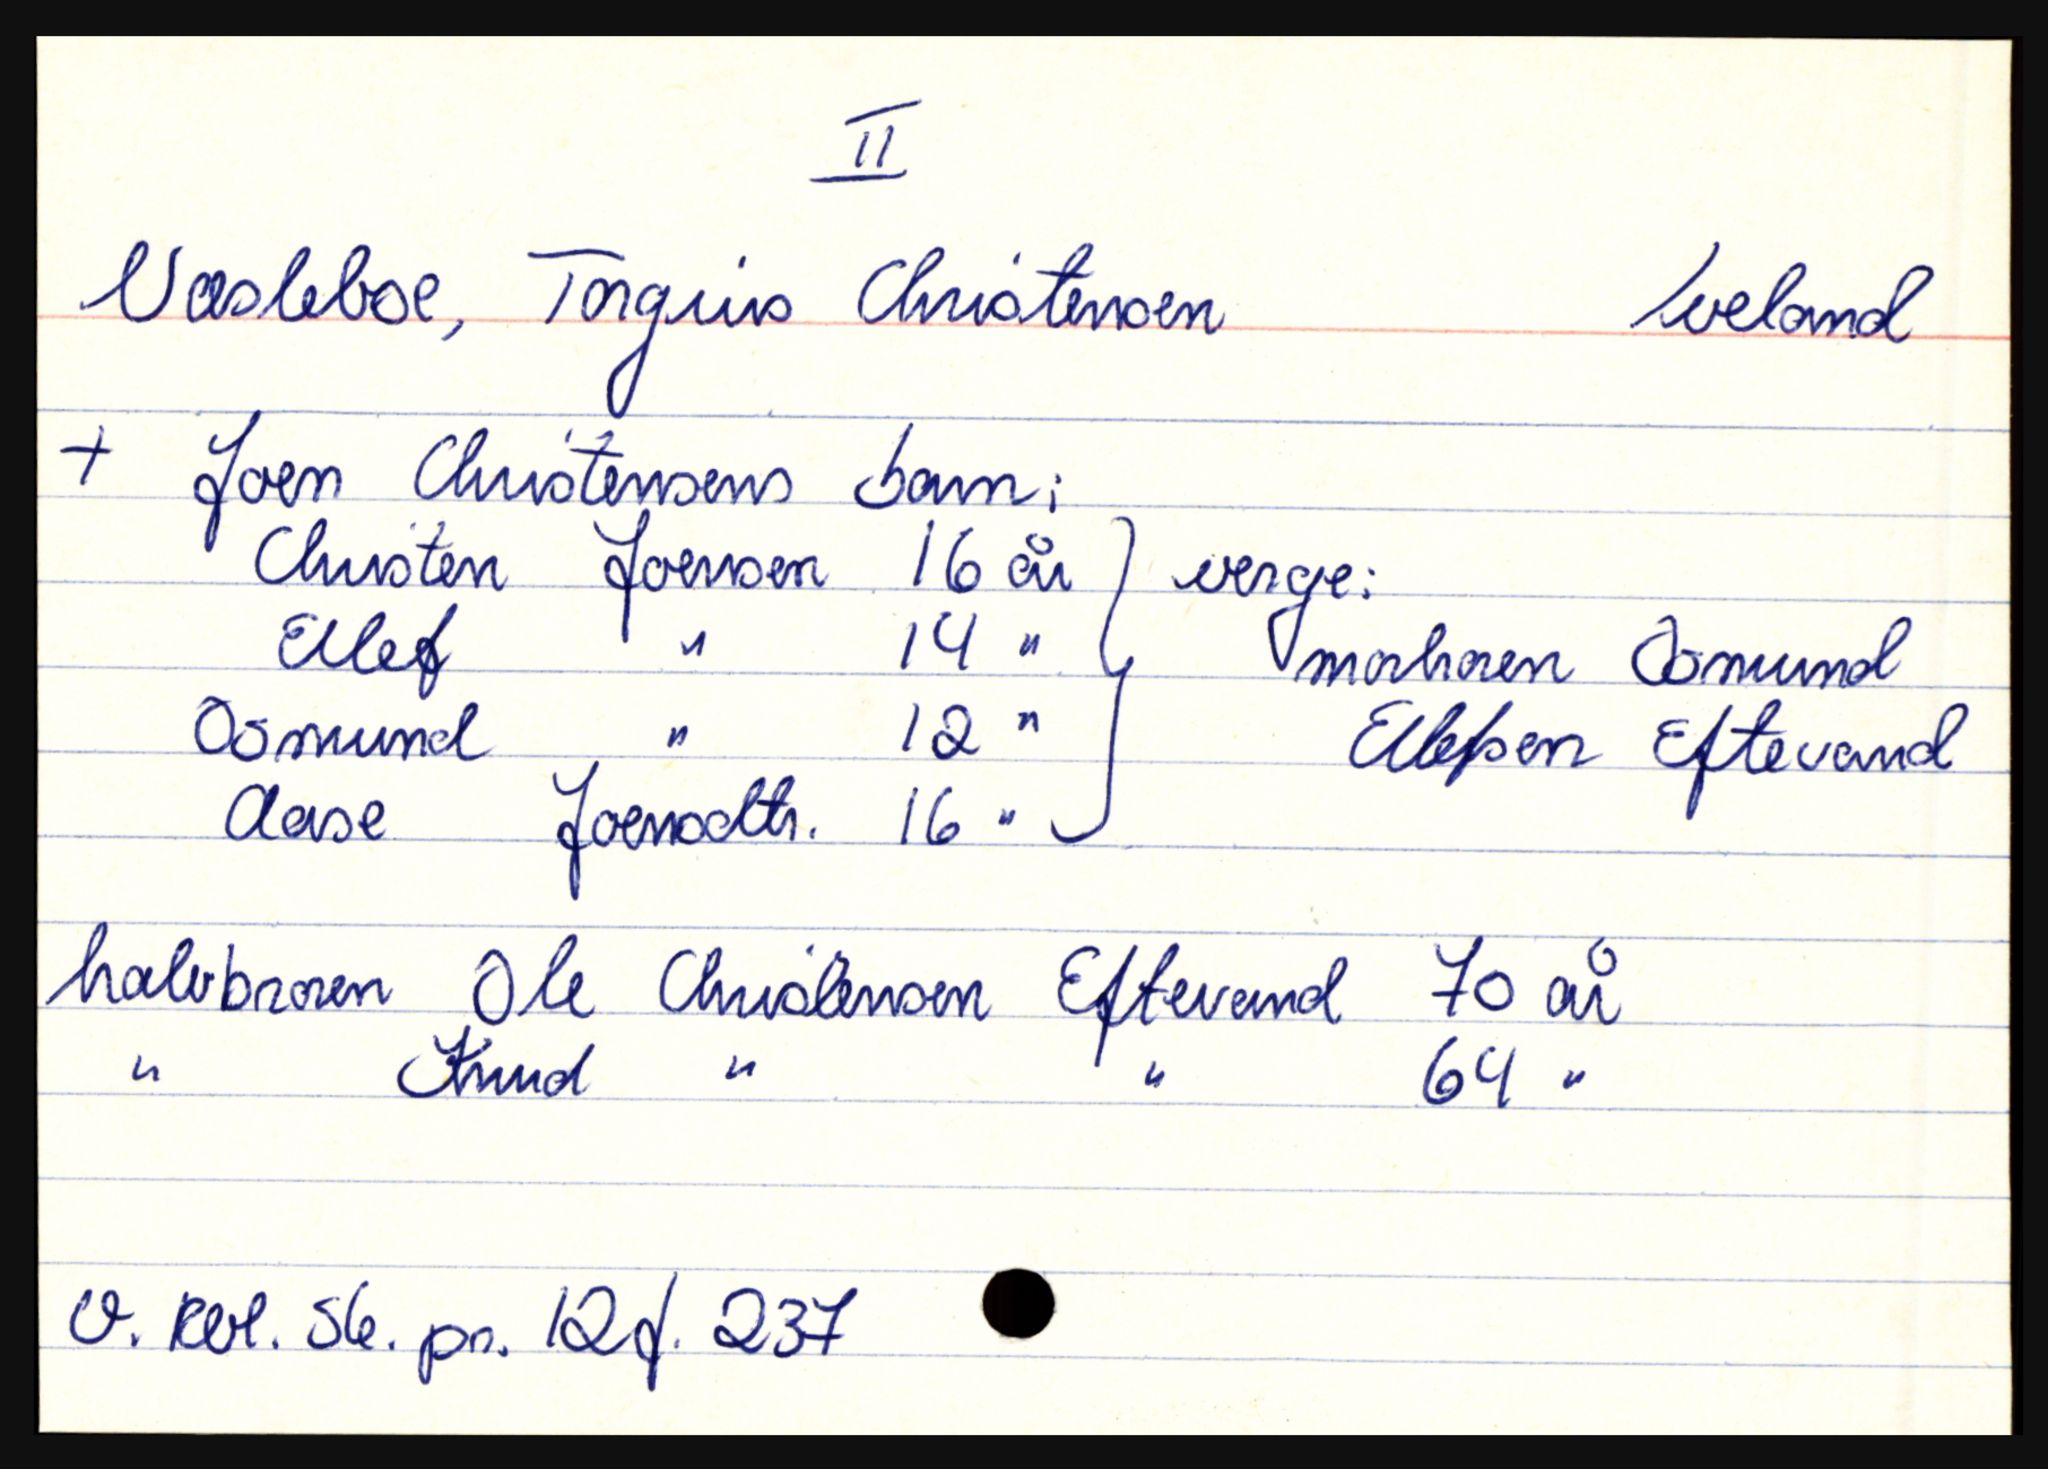 II
Væsleboe, Torgius Christensen Iveland
+ Joen Christensens barn:
Christen Joensen 16 år } verge:
Ellef " 14 " morbroren Osmund
Osmund " 12 " Ellefsen Eftevand
Aase Joensdtr. 16 "
halvbroren Ole Christensen Eftevand 70 år
" Knud " " 64 "
v. Rbl. Sk. pr. 12 f. 237